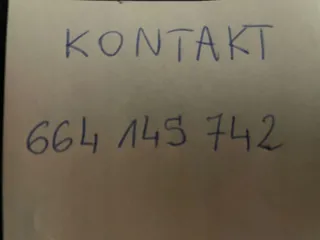 KONTAKT
664 145 742